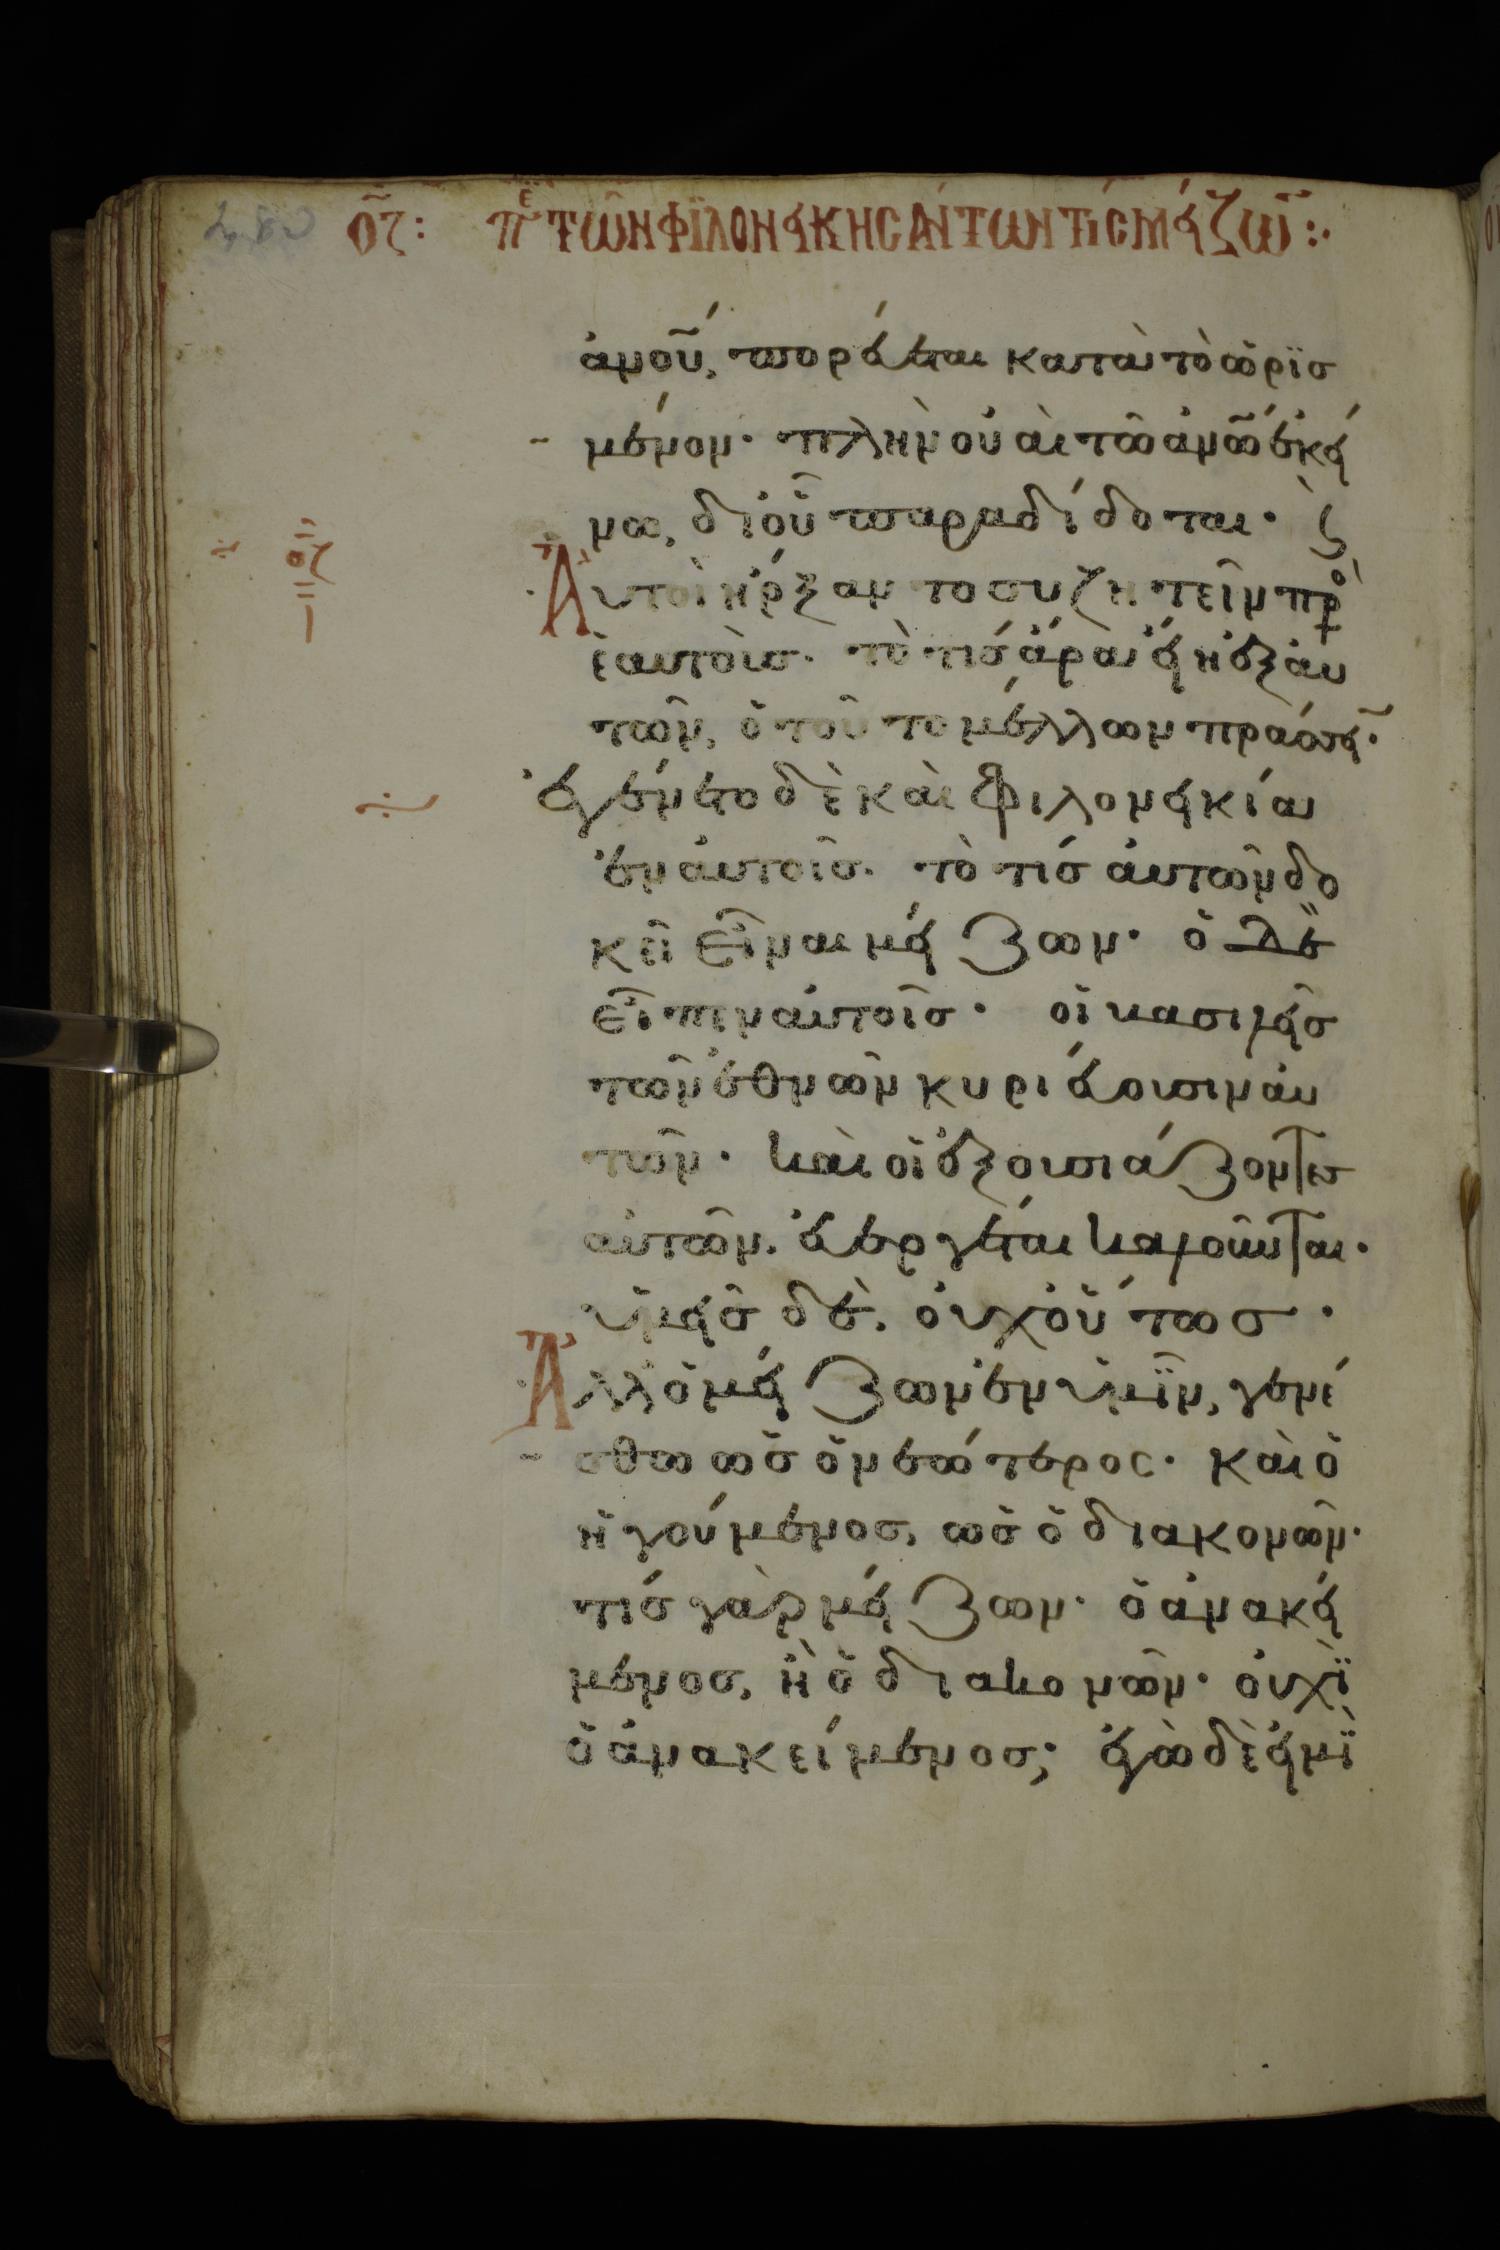 οζ: πε τῶν φιλονεικησάντων τίς μείζω:
ἀνου, πορεύεται κατὰ τὸ ὡρισ
μένον· πλὴν οὐαὶ τῶ ἀνω ἐκεί
νω, δι οὗ παραδίδοται· ϛ
οζ
Αυτοὶ ἤρξαντο συζητεῖν πρὸ
ἑαυτοὺσ. τὸ τίσ ἄρα εἴη ἐξ αυ
τῶν, ὁ τοῦτο μέλλων πράσσειν·
ἐγένετο δὲ καὶ φιλονεικία
ἐν αὐτοῖσ. τὸ τίσ αὐτῶν δο
κεῖ εἶναι μείζων· ὁ δὲ
εἶπεν αὐτοῖσ· οἱ βασιλεῖσ
τῶν ἐθνῶν κυριεύουσιν αὐ
τῶν· καὶ οἱ ἐξουσιάζοντεσ
αὐτῶν. εὐεργέται καλοῦνται·
ὑμεῖσ δὲ. οὐχ οὕτωσ·
Αλλ ὁ μείζων ἐν ὑμῖν, γενέ
σθω ὡσ ὁ νεώτεροσ· καὶ ὁ
ἡγούμενοσ, ὡσ ὁ διακονῶν·
τίσ γὰρ μείζων· ὁ ἀνακεί
μενοσ, ἢ ὁ διακονῶν· οὐχὶ
ὁ ἀνακείμενοσ; ἐγὼ δὲ εἰμὶ